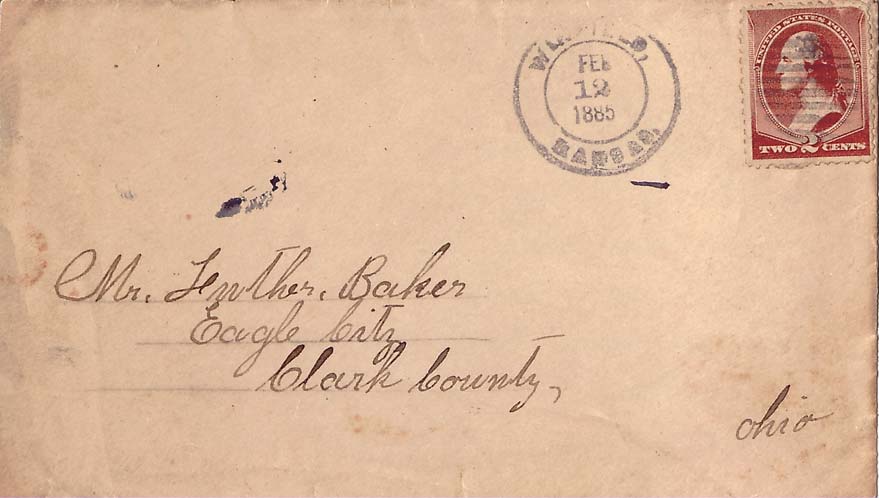 FEB
12
1885
KANSAS.
UNITED STATES POSTAGE
TWO 2 CENTS
Mr. Luther. Baker
Eagle City
Clark County,
Ohio